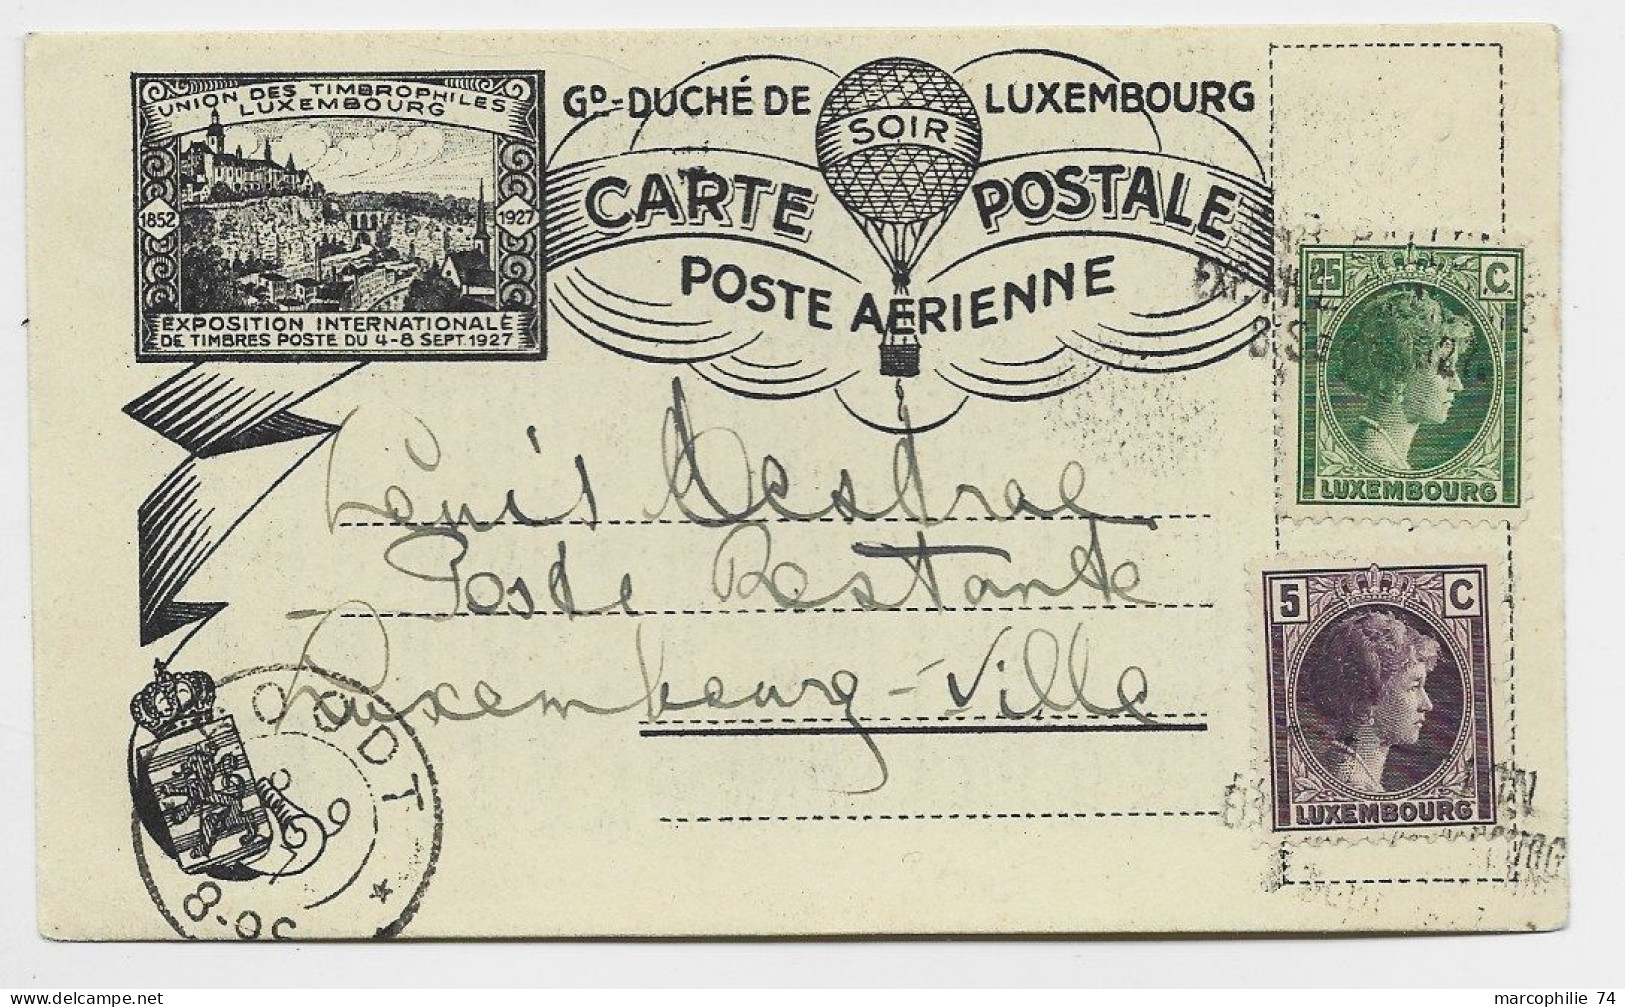 UNION DES TIMBROPHILES
LUXEMBOURG
1852 1927
EXPOSITION INTERNATIONALE
DE TIMBRES POSTE DU 4-8 SEPT. 1927
GD.-DUCHÉ DE LUXEMBOURG
SOIR
CARTE POSTALE
POSTE AÉRIENNE
25 C.
LUXEMBOURG
5 C
LUXEMBOURG
Louis Mestrae
Poste Restante
Luxembourg-Ville
OODT
marcophilie 74